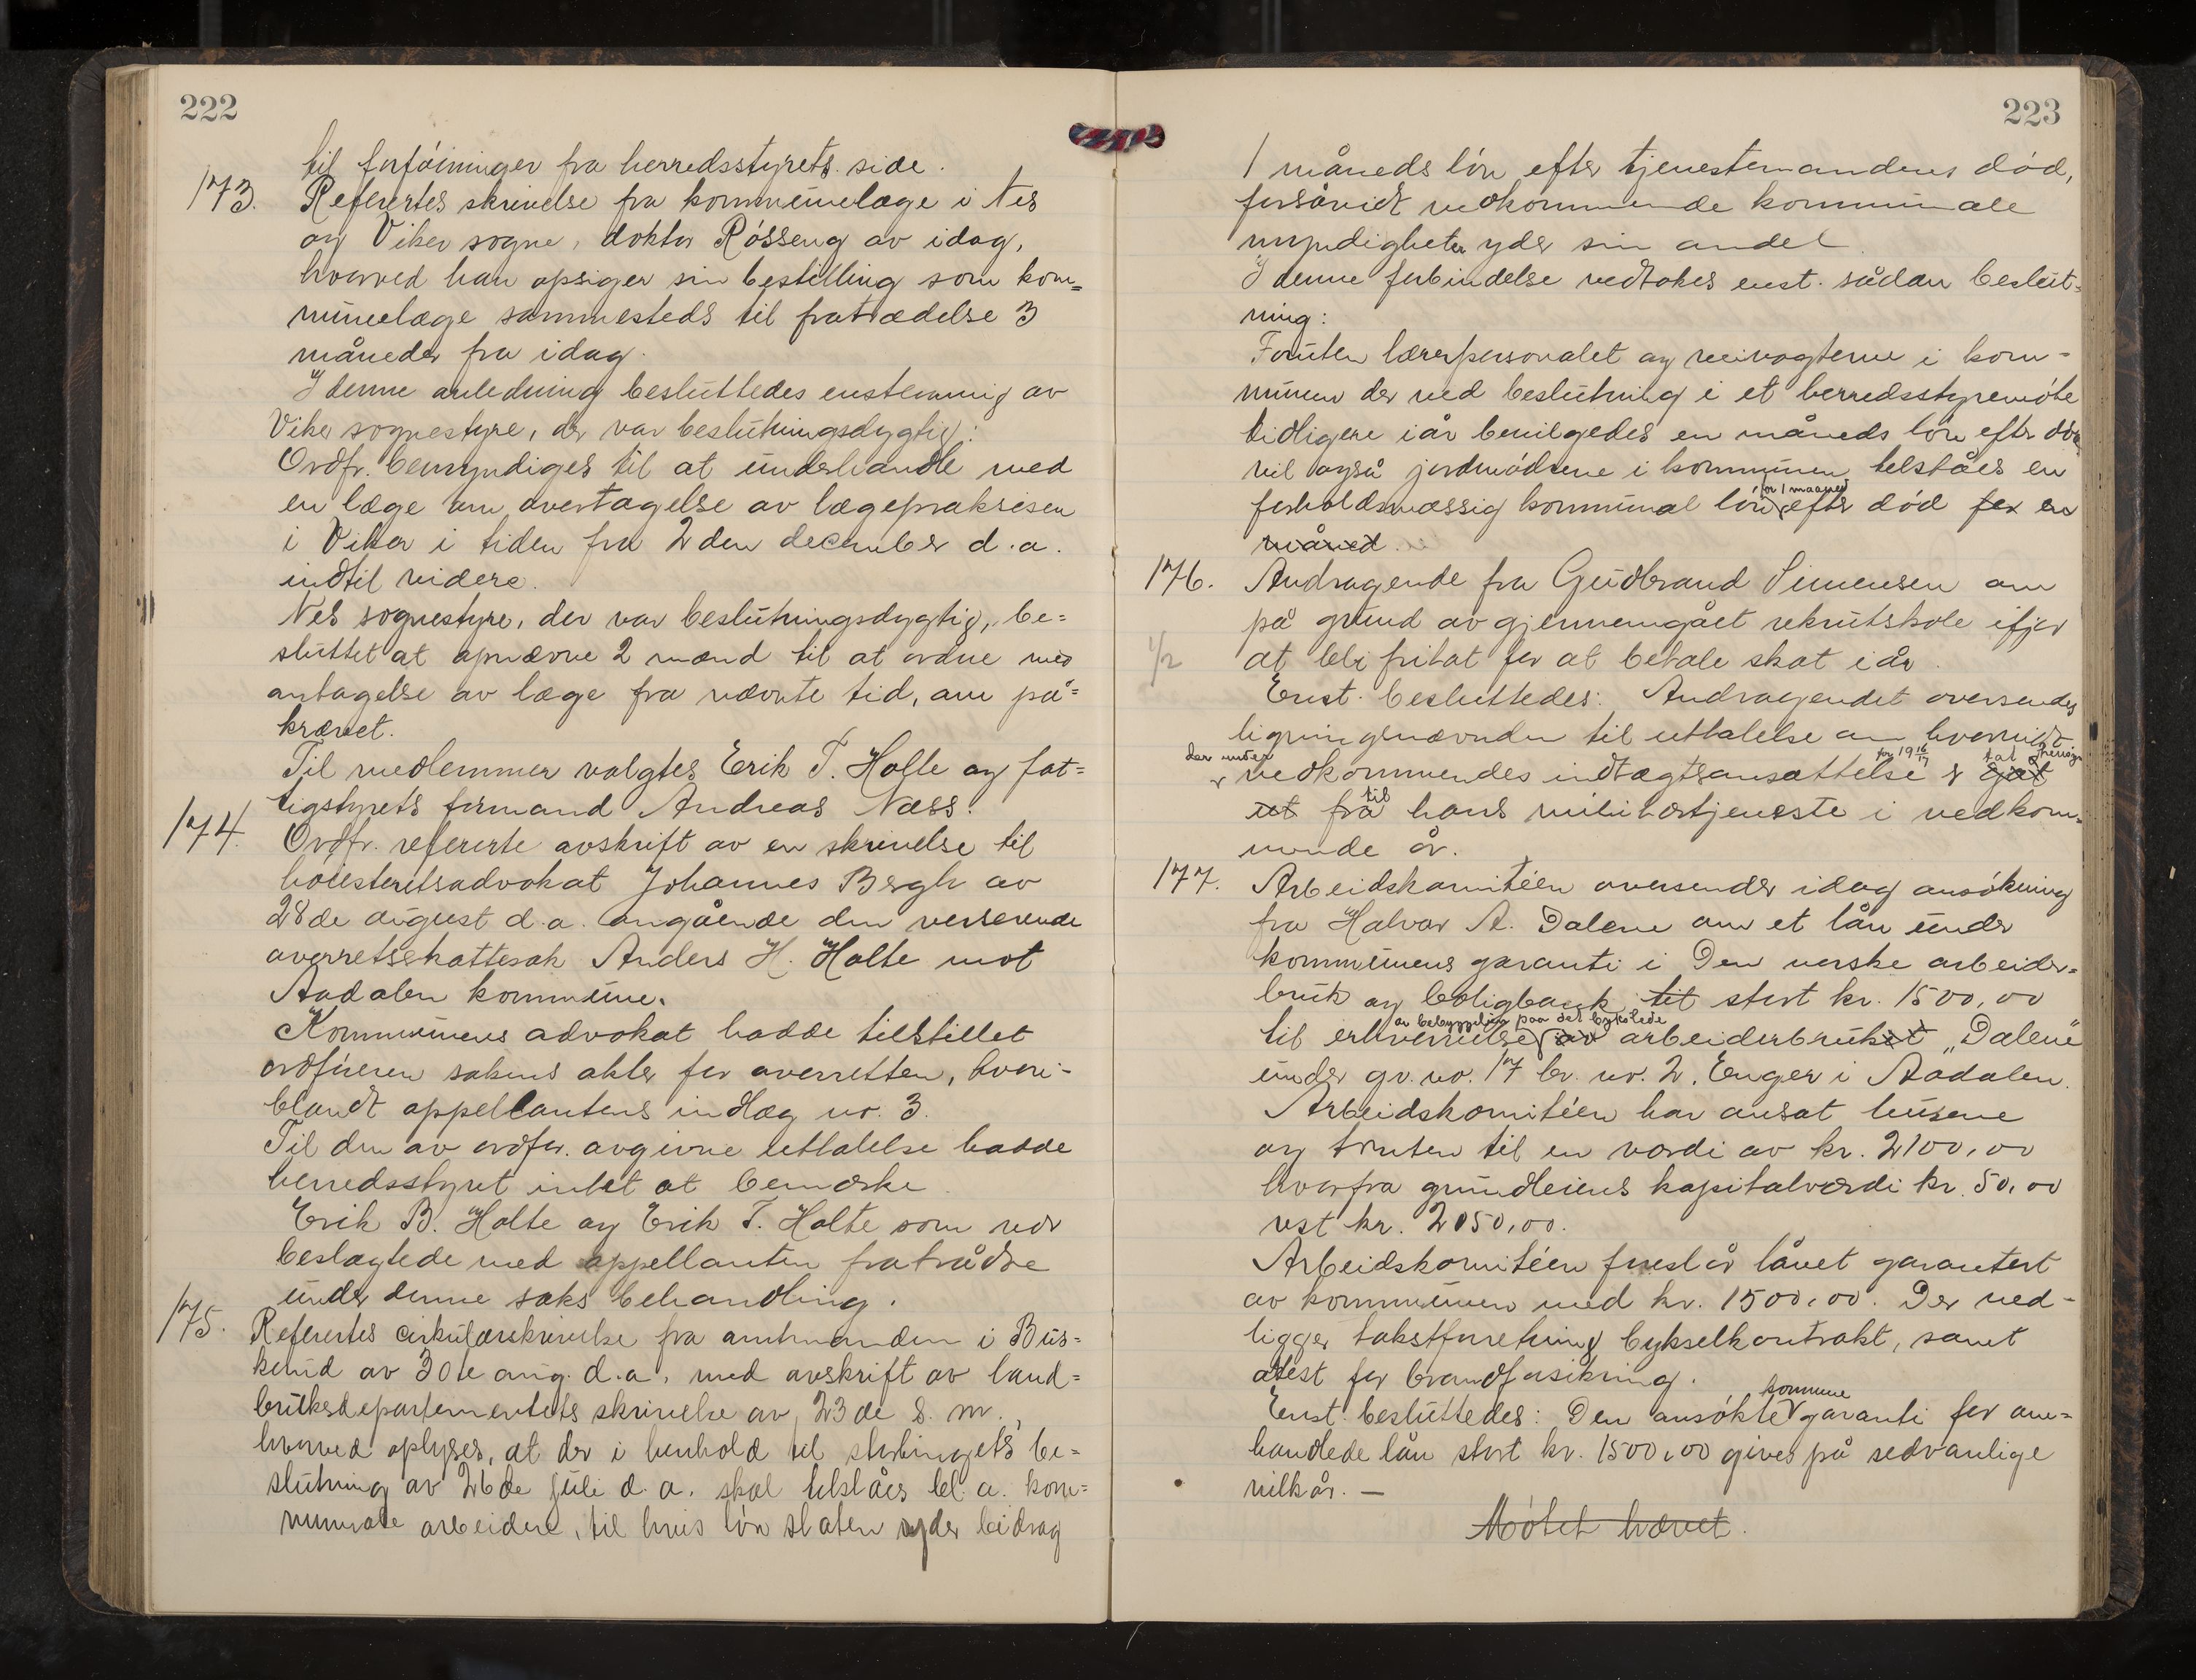 222
til forföininger fra herredsstyrets side.
173. Refertes skrivelse fra kommunelæge i Nes
og Viker sogne, doktor Rösseng av idag,
hvorved han opsiger sin bestilling som kom=
munelæge sammesteds til fratrædelse 3
måneder fra idag.
I denne anledning besluttedes enstemmig av
Viker sognestyre, der var beslutningsdygtig:
Ordfr. bemyndiges til at underhandle med
en læge om overtagelse av lægepraksisen
i Viker i tiden fra 2den december d.a.
indtil videre.
Nes sognestyre, der var beslutningsdygtig, be=
sluttet at opnævne 2 mænd til at ordne med
antagelse av læge fra nævnte tid, om på=
krævet.
Til medlemmer valgtes Erik T. Holte og fat=
tigstyrets formand Andreas Næss.
174. Ordfr. refererte avskrift av en skrivelse til
höiesteretsadvokat Johannes Bergh av
28de august d.a. angående den verserende
overretsskattesak Anders H. Holte mot
Aadalen kommune.
Kommunens advokat hadde tilstillet
ordföreren sakens akter for overretten, hvori-
blandt appellantens indlæg nr. 3.
Til den av ordför. avgivne uttalelse hadde
herredsstyret intet at bemærke.
Erik B. Holte og Erik T. Holte som var
beslægtede med appellanten fratrådte
under denne saks behandling.
175. Refertes cirkulærskrivelse fra amtmanden i Bus=
kerud av 30te aug. d.a. med avskrift av land=
bruksdepartementets skrivelse av 23de s.m.,
hvorved oplyses, at der i henhold til stortingets be=
slutning av 26de juli d.a. skal tilståes bl.a. kom=
munale arbeidere, til hvis lön staten yder bidrag
223
1 måneds lön efter tjenestemandens död,
forsåvidt vedkommende kommunale
myndigheter yder sin andel.
I denne forbindelse vedtokes enst. sådan beslut=
ning:
Foruten lærerpersonalet og veivogterne i kom=
munen der ved beslutning i et herredsstyremöte
tidligere iår bevilgedes en måneds lön efter död
vil også jordmödrene i kommunen tilståes en
for 1 maaned
forholdsmæssig kommunal lön efter död for en
måned.
176. Andragende fra Gudbrand Simensen om
på grund av gjennemgået rekrutskole ifjor
1/2 at bli fritat for at betale skat iår.
Enst. besluttedes: Andragendet oversendes
ligningsnævnden til uttalelse om hvorvidt
der under for 1916/17 tat hensyn
vedkommendes indtægtsansættelse er gåt
til
ut fra hans militærtjeneste i vedkom=
mende år.
177. Arbeidskomitéen oversender idag ansökning
fra Halvor A. Dalene om et lån under
kommunens garanti i Den norske arbeider=
bruk og boligbank til stort kr. 1500,00
av bebyggelsen paa det bykslede
til erhvervelse av arbeiderbruket "Dalene"
under gr. no. 17 br. nr. 2. Enger i Aadalen.
Arbeidskomitéen har ansat husene
og tomten til en værdi av kr. 2100,00
hvorfra grundleiens kapitalværdi kr. 50,00
rest kr. 2050,00.
Arbeidskomitéen foreslår lånet garantert
av kommunen med kr. 1500,00. Der ved-
ligger takstforretning bykselkontrakt, samt
attest for brandforsikring.
kommune
Enst. besluttedes: Den ansökte garanti for om=
handlede lån stort kr. 1500,00 gives på sedvanlige
vilkår. —
Mötet hævet.